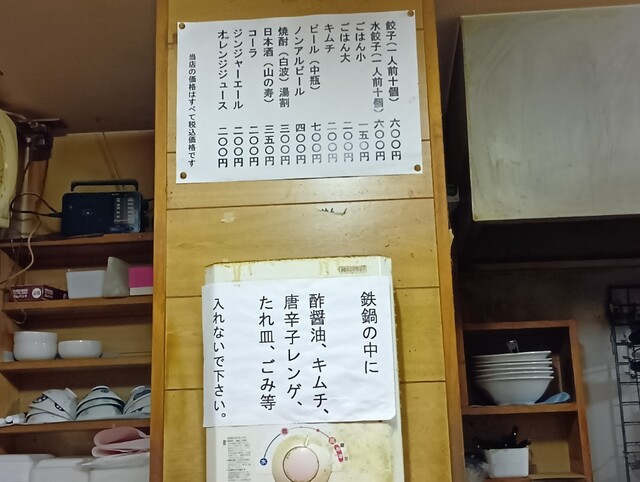 餃子(一人前十個) 六〇〇円
水餃子(一人前十個) 六〇〇円
ごはん小 一五〇円
ごはん大 二〇〇円
キムチ 二〇〇円
ビール(中瓶) 七〇〇円
ノンアルビール 四〇〇円
焼酎(白波)湯割 三〇〇円
日本酒(山の寿) 三五〇円
コーラ 二〇〇円
ジンジャーエール 二〇〇円
オレンジジュース 二〇〇円
当店の価格はすべて税込価格です
鉄鍋の中に
酢醤油、キムチ、
唐辛子レンゲ、
たれ皿、ごみ等
入れないで下さい。